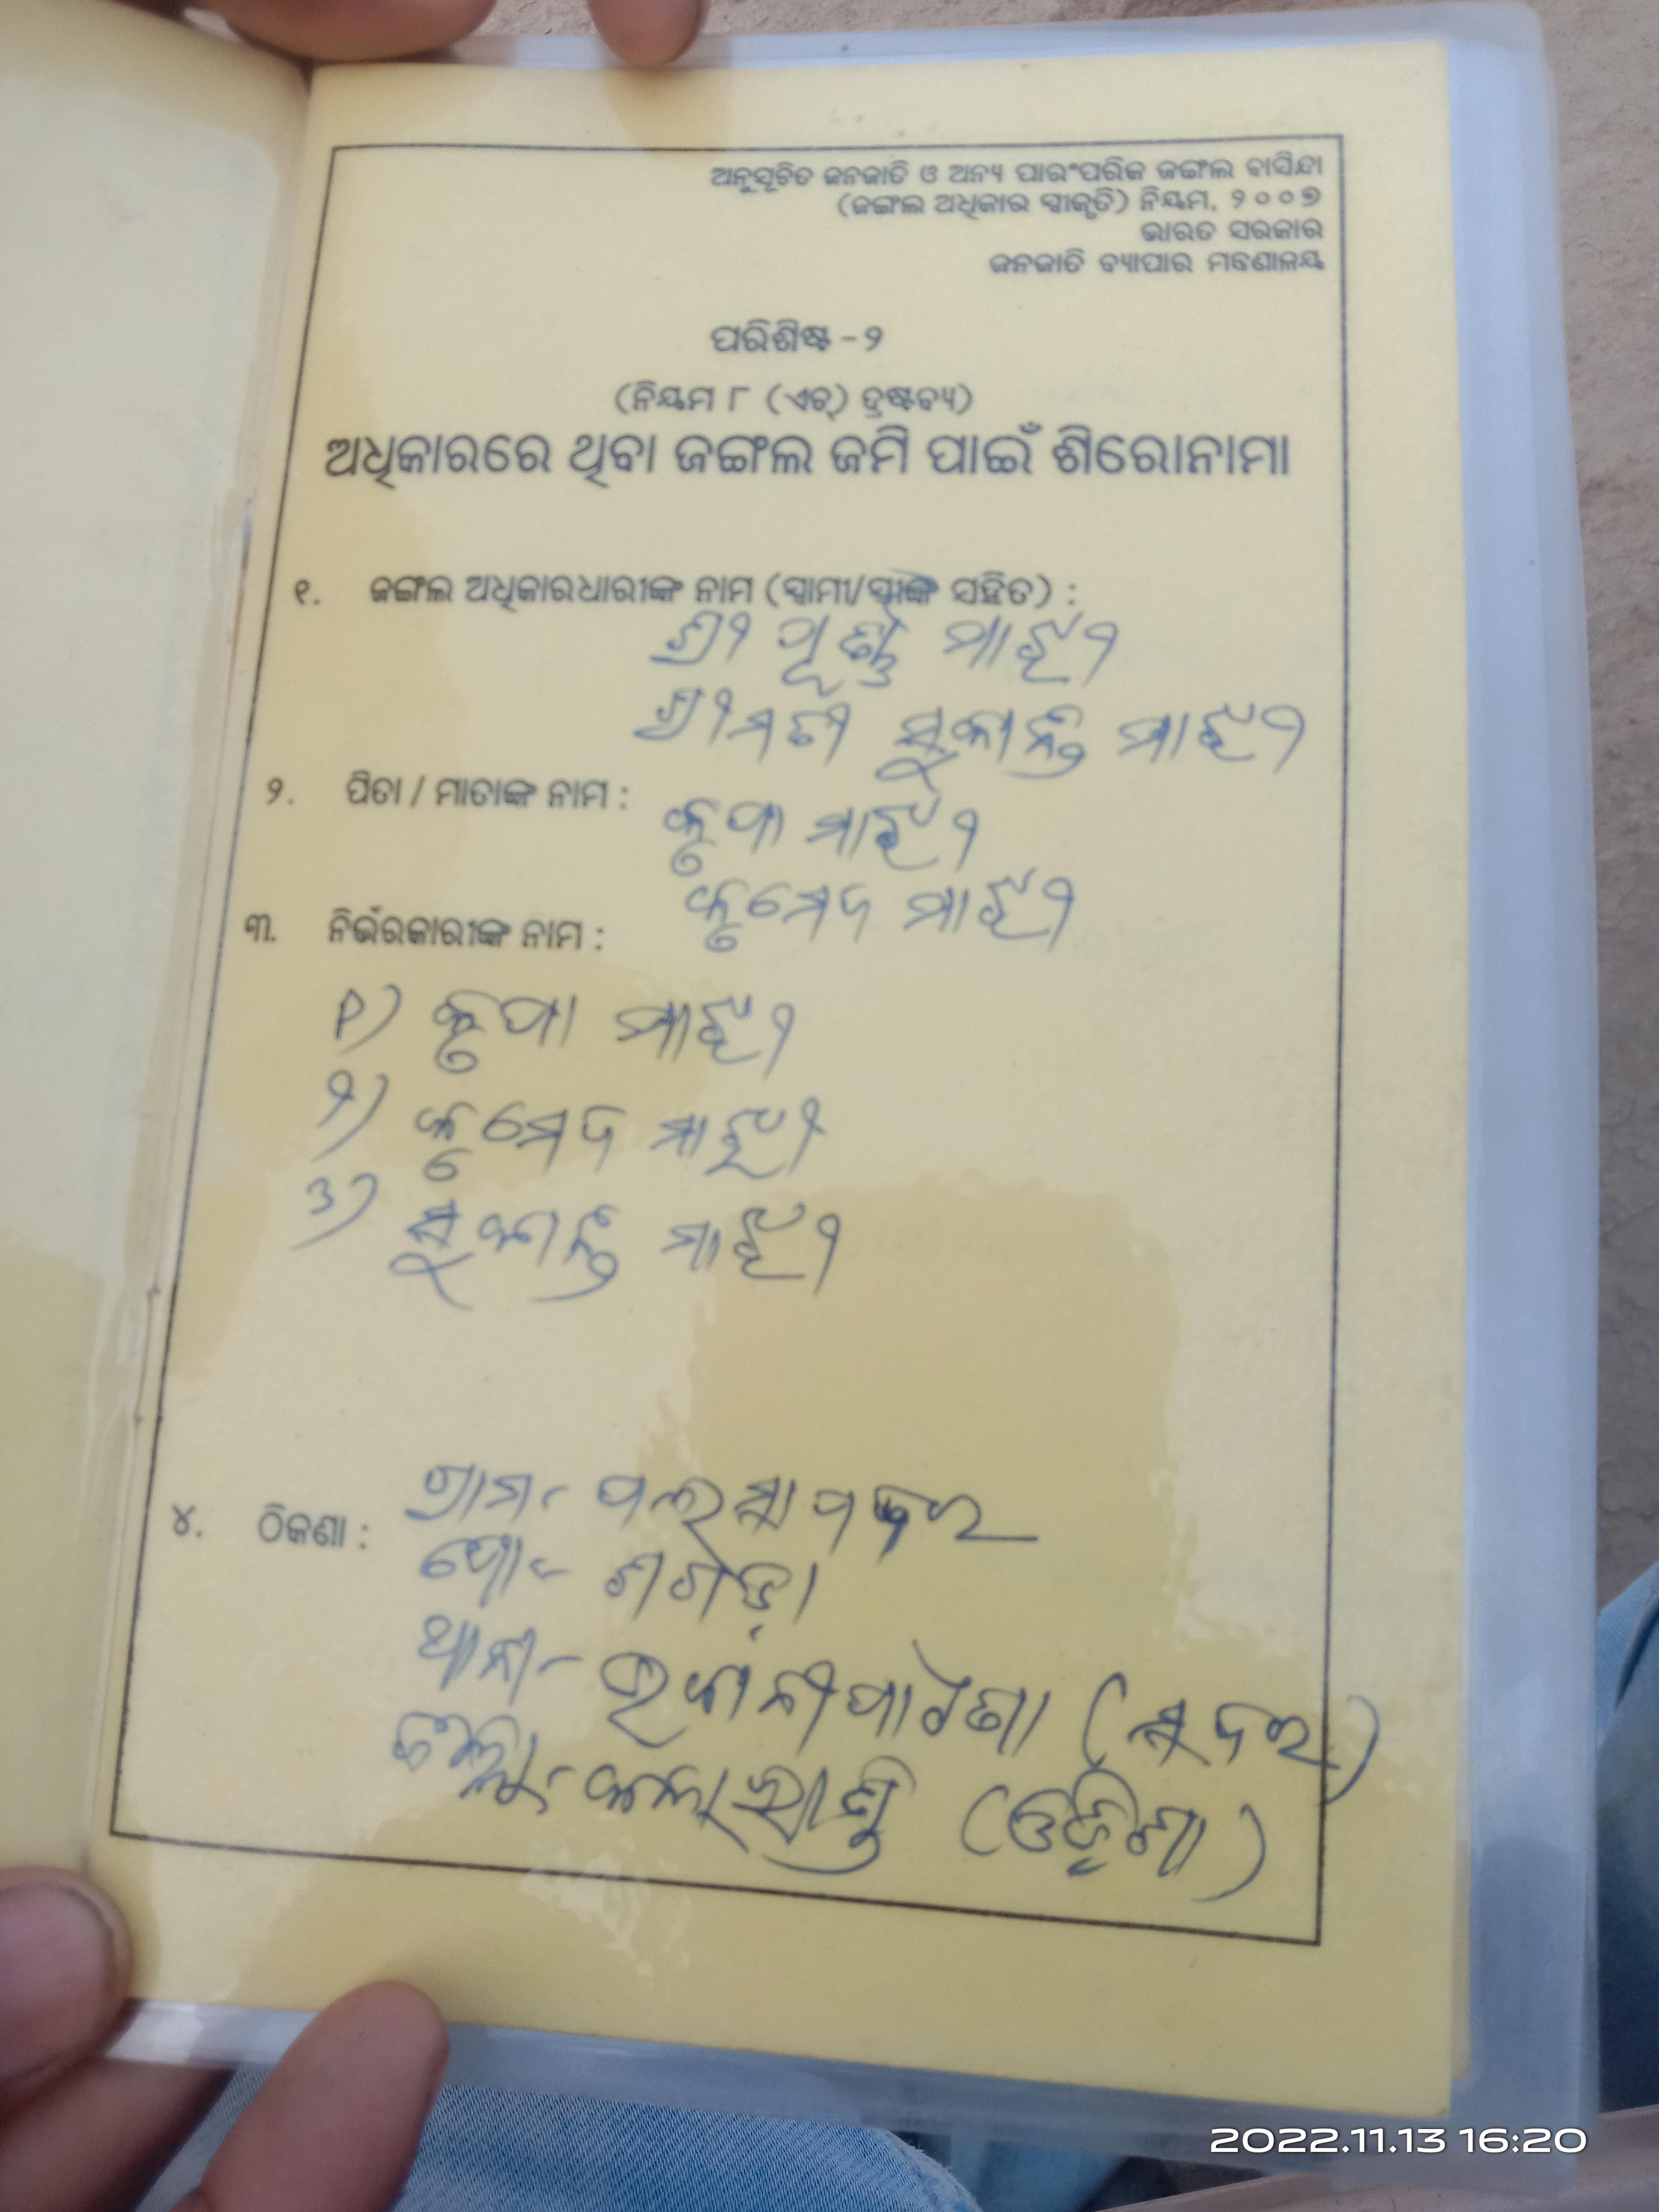 ଅନୁସୂଚିତ ଜନଜାତି ଓ ଅନ୍ୟ ପାରଂପରିକ ଜଙ୍ଗଲ ବାସିନ୍ଦା
(ଜଙ୍ଗଲ ଅଧିକାର ସ୍ୱୀକୃତି) ନିୟମ, ୨୦୦୭
ଭାରତ ସରକାର
ଜନଜାତି ବ୍ୟାପାର
ପରିଶିଷ୍ଟ - ୨
(ନିୟମ ୮ (ଏଚ୍) ଦ୍ରଷ୍ଟବ୍ୟ)
ଅଧିକାରରେ ଥିବା ଜଙ୍ଗଲ ଜମି ପାଇଁ ଶିରୋନାମା
୧. ଜଙ୍ଗଲ ଅଧିକାରଧାରୀଙ୍କ ନାମ (ସ୍ୱାମୀ/ସ୍ତ୍ରୀଙ୍କ ସହିତ) :
ଶ୍ରୀ ମାଝୀ
ଶ୍ରୀମତୀ ସୁକାନ୍ତି ମାଝୀ
୨. ପିତା / ମାତାଙ୍କ ନାମ :
କୃପା ମାଝୀ
ମାଝୀ
୩. ନିର୍ଭରକାରୀଙ୍କ ନାମ :
୧) କୃପା ମାଝୀ
୨) ମାଝୀ
୩) ସୁକାନ୍ତି ମାଝୀ
୪. ଠିକଣା :
ଗ୍ରାମ -
ପୋ - ଶଗଡ଼ା
ଥାନା - ଭବାନୀପାଟଣା (ସଦର)
ଜିଲ୍ଲା - କଳାହାଣ୍ଡି (ଓଡ଼ିଶା)
2022.11.13 16:20